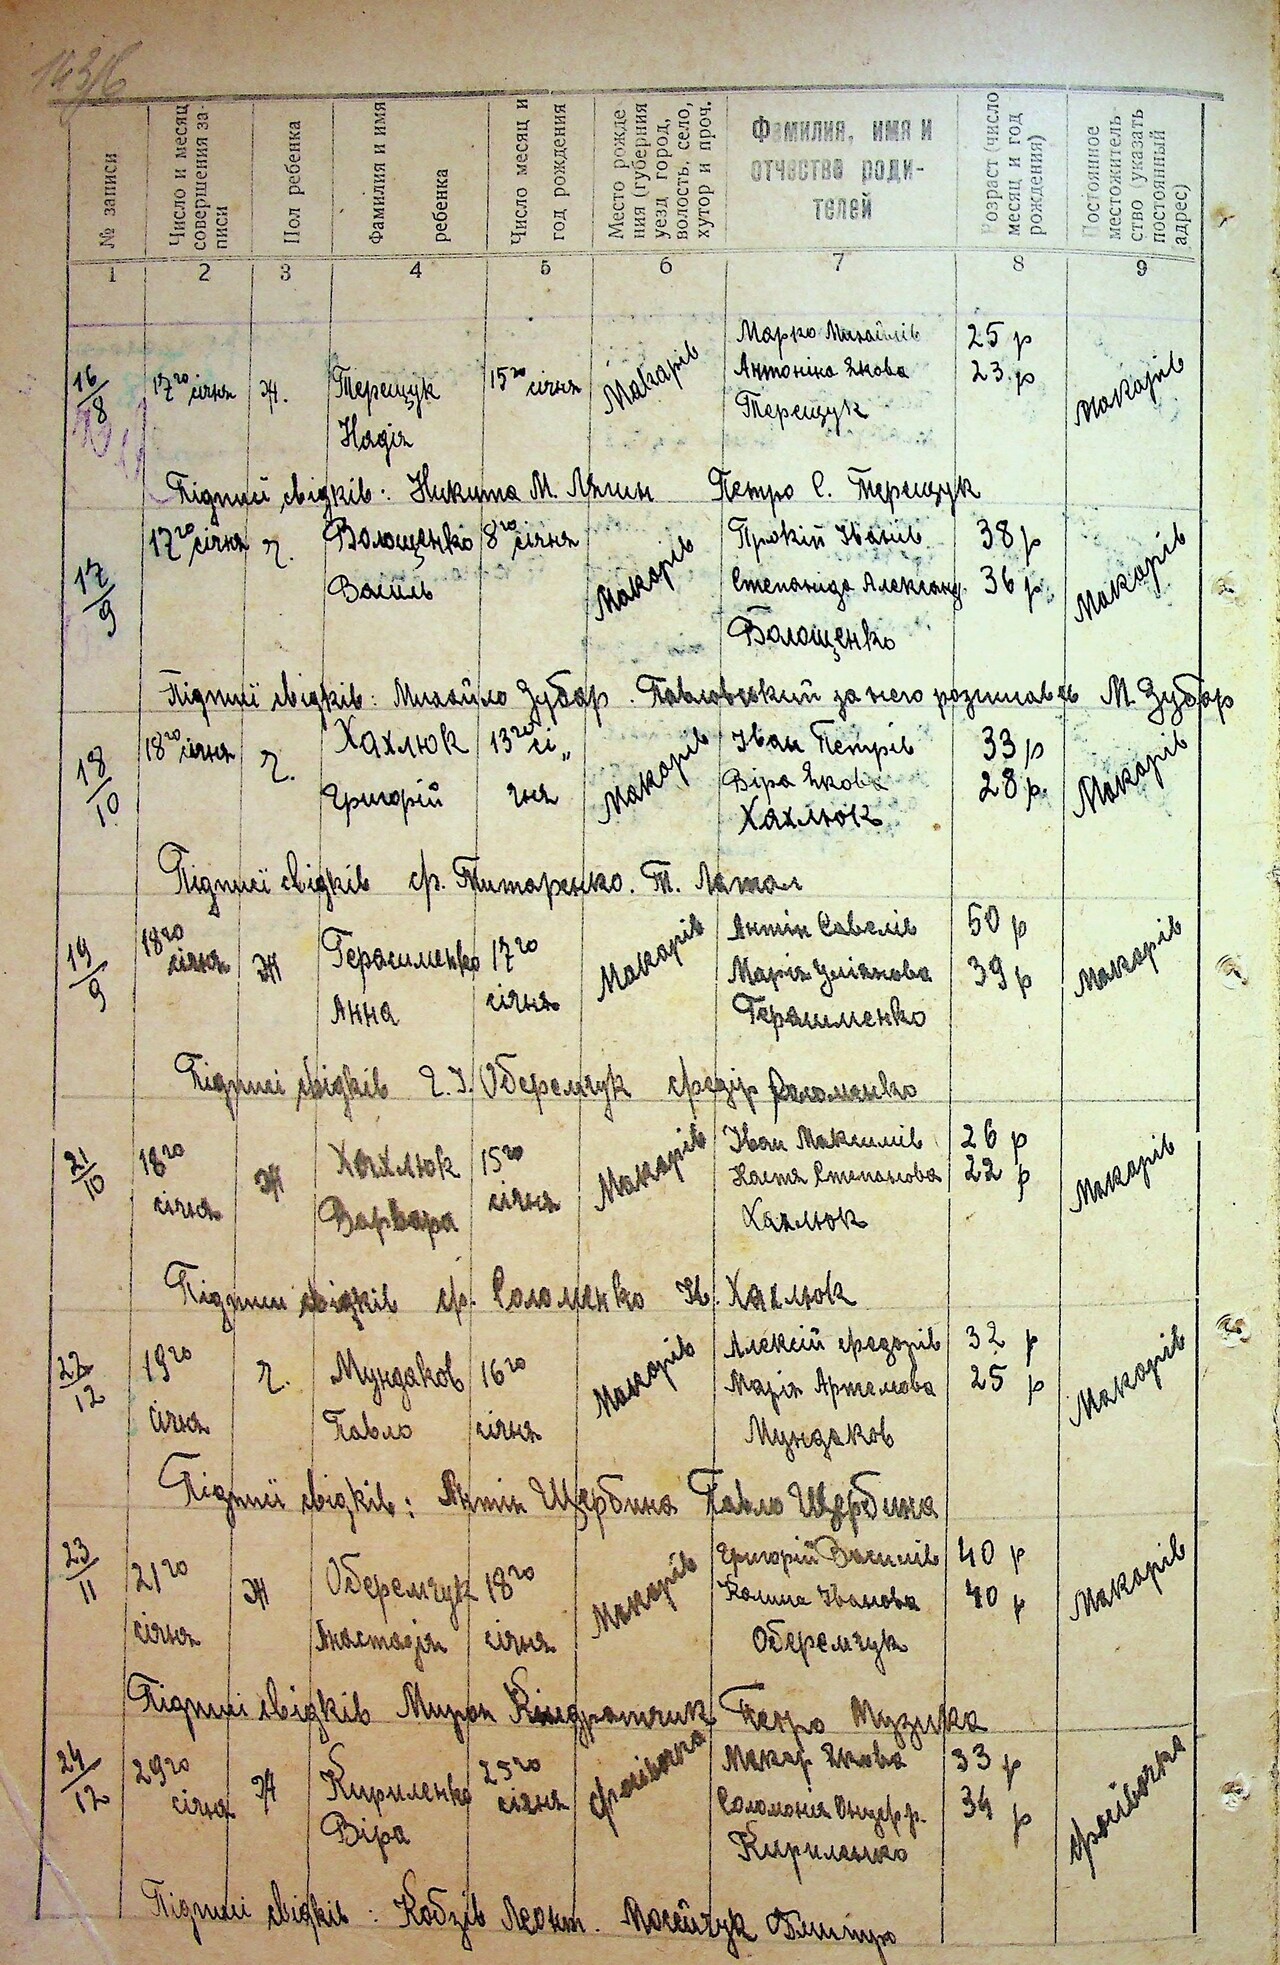 143/6
№ записи
Число и месяц совершения записи
Пол ребенка
Фамилия и имя ребенка
Число месяц и год рождения
Место рождения (губерния уезд город, волость, село, хутор и проч.
Фамилия, имя и отчество родителей
Возраст (число месяц и год рождения)
Постоянное местожительство (указать постоянный адрес)
1 2 3 4 5 6 7 8 9
16/8 17го січня ж. Терещук Надія 15го січня Макарів Марко Михайлів 25 р Макарів
Антоніна Якова 23 р
Терещук
Підписі свідків: Никита М. Петро С. Терещук
17/9 17го січня ч. Волощенко Василь 8го січня Макарів Прокіп Іванів 38 р Макарів
Степаніда Александ. 36 р.
Волощенко
Підписі свідків: Михайло Зубар. Павловський за него розписавсь М. Зубар
18/10 18го січня ч. Хахлюк Григорій 13го січня Макарів Іван Петрів 33 р Макарів
Віра Якова 28 р.
Хахлюк
Підписі свідків Ф. Титаренко. Т.
19/9 18го січня ж Герасименко Анна 17го січня Макарів Антін Савелів 50 р Макарів
Марія Улянова 39 р
Герасименко
Підписі свідків Г. І. Оберемчук Федір Соломенко
21/10 18го січня ж Хахлюк Варвара 15го січня Макарів Іван Максимів 26 р Макарів
Настя Степанова 22 р
Хахлюк
Підписі свідків Ф. Соломенко Хахлюк
22/12 19го січня ч. Мундаков Павло 16го січня Макарів Алексій Федорів 32 р Макарів
Марія Артемова 25 р
Мундаков
Підписі свідків: Антін Щербина Павло Щербина
23/11 21го січня ж Оберемчук Анастасія 18го січня Макарів Григорій Василів 40 р Макарів
Іванова 40 р
Оберемчук
Підписі свідків Мирон Кіндратчик Петро Музика
24/12 29го січня ж Кириленко Віра 25го січня Фасівочка Макар Якова 33 р Фасівочка
Соломонія Онуфр. 34 р
Кириленко
Підписі свідків: Кобзів Леонт. Мосейчук Дмитро